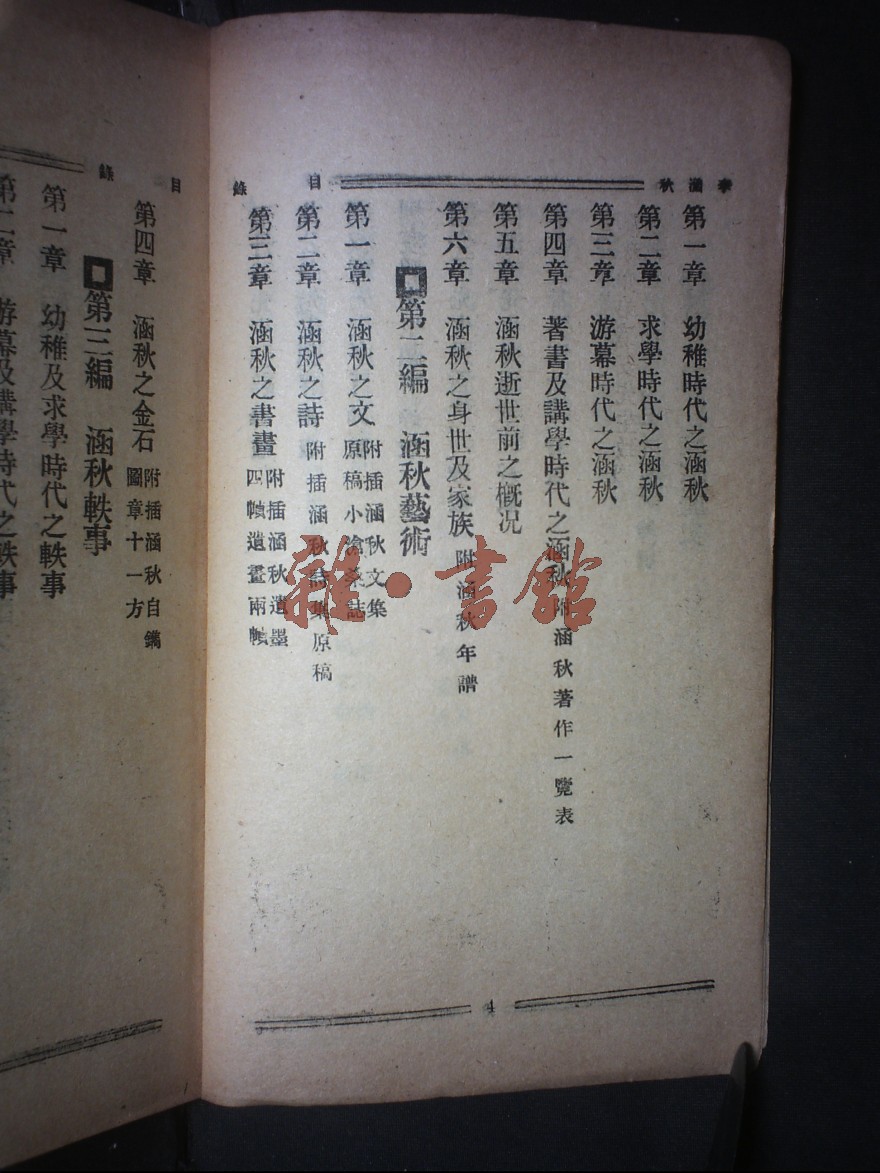 李涵秋 目錄
第一章 幼稚時代之涵秋
第二章 求學時代之涵秋
第三章 游幕時代之涵秋
第四章 著書及講學時代之涵秋 附涵秋著作一覽表
第五章 涵秋逝世前之概況
第六章 涵秋之身世及家族 附涵秋年譜
第二編 涵秋藝術
第一章 涵秋之文 附插涵秋文集原稿小滄桑誌
第二章 涵秋之詩 附插涵秋詩集原稿
第三章 涵秋之書畫 附插涵秋遺墨四幀遺畫兩幀
4
目錄
第四章 涵秋之金石 附插涵秋自鐫圖章十一方
第三編 涵秋軼事
第一章 幼稚及求學時代之軼事
第二章 游幕及講學時代之軼事
雜·書館